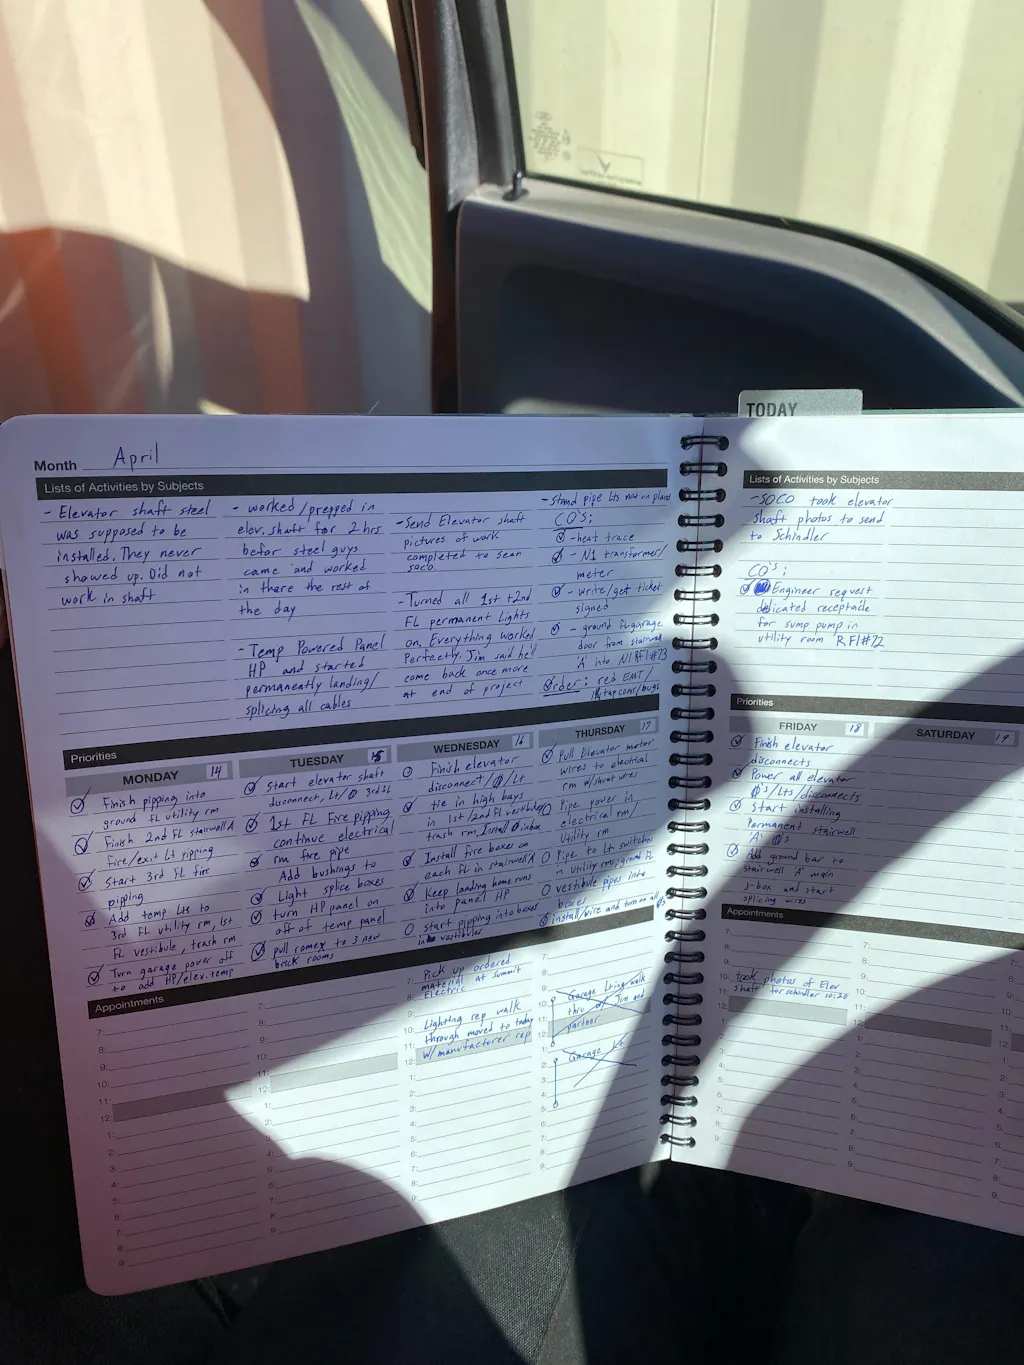 TODAY
Month April
Lists of Activities by Subjects
- Elevator shaft steel
was supposed to be
installed. They never
showed up. Did not
work in shaft
- worked/prepped in
elev. shaft for 2 hrs
befor steel guys
came and worked
in there the rest of
the day
- Temp Powered Panel
HP and started
permanently landing/
splicing all cables
- Send Elevator shaft
pictures of work
completed to sean
soco.
- Turned all 1st + 2nd
FL permanent Lights
on. Everything worked
Perfectly. Jim said he'll
come back once more
at end of project
- Stand pipe Lts not on plans
CO's:
- heat trace
- N1 transformer/
meter
- write/get ticket
signed
- ground FL garage
door from stairwell
'A' into N1 RFI#73
Order: red EMT/
tapcons/bugs
Priorities
MONDAY 14
Finish pipping into
ground FL utility rm
Finish 2nd FL stairwell A
Fire/exit Lt pipping
Start 3rd FL fire
pipping
Add temp Lts to
3rd FL utility rm, 1st
FL vestibule, trash rm
Turn garage power off
to add HP/elev. temp
TUESDAY 15
Start elevator shaft
disconnect, Lt/Ø 3rd FL
1st FL Fire pipping
continue electrical
rm fire pipe
Add bushings to
Light splice boxes
turn HP panel on
off of temp panel
pull romex to 3 new
brick rooms
WEDNESDAY 16
Finish elevator
disconnect/Ø/Lt
tie in high bays
in 1st/2nd FL vestibule/
trash rm, Install Ø inbox
Install fire boxes on
each FL in stairwell A
Keep landing home runs
into panel HP
start pipping into boxes
in vestibules
THURSDAY 17
Pull Elevator motor
wires to electrical
rm w/shunt wires
Pipe power in
electrical rm/
Utility rm
Pipe to Lt switches
in utility rms, ground FL
vestibule pipes into
boxes
install/wire and turn on all Ø's
Appointments
Pick up ordered
material at Summit
Electric
Lighting rep walk
through moved to today
w/manufacturer rep
Garage Lting walk
thru w/ Jim and
partner
Garage Lt
Lists of Activities by Subjects
- SOCO took elevator
shaft photos to send
to Schindler
CO's:
Engineer request
dedicated receptacle
for sump pump in
utility room RFI#72
Priorities
FRIDAY 18
SATURDAY 19
Finish elevator
disconnects
Power all elevator
Ø's/Lts/disconnects
Start installing
Permanent stairwell
'A' Ø's
Add ground bar to
stairwell 'A' main
J-box and start
splicing wires
Appointments
took photos of Elev
shaft for schindler 10:20